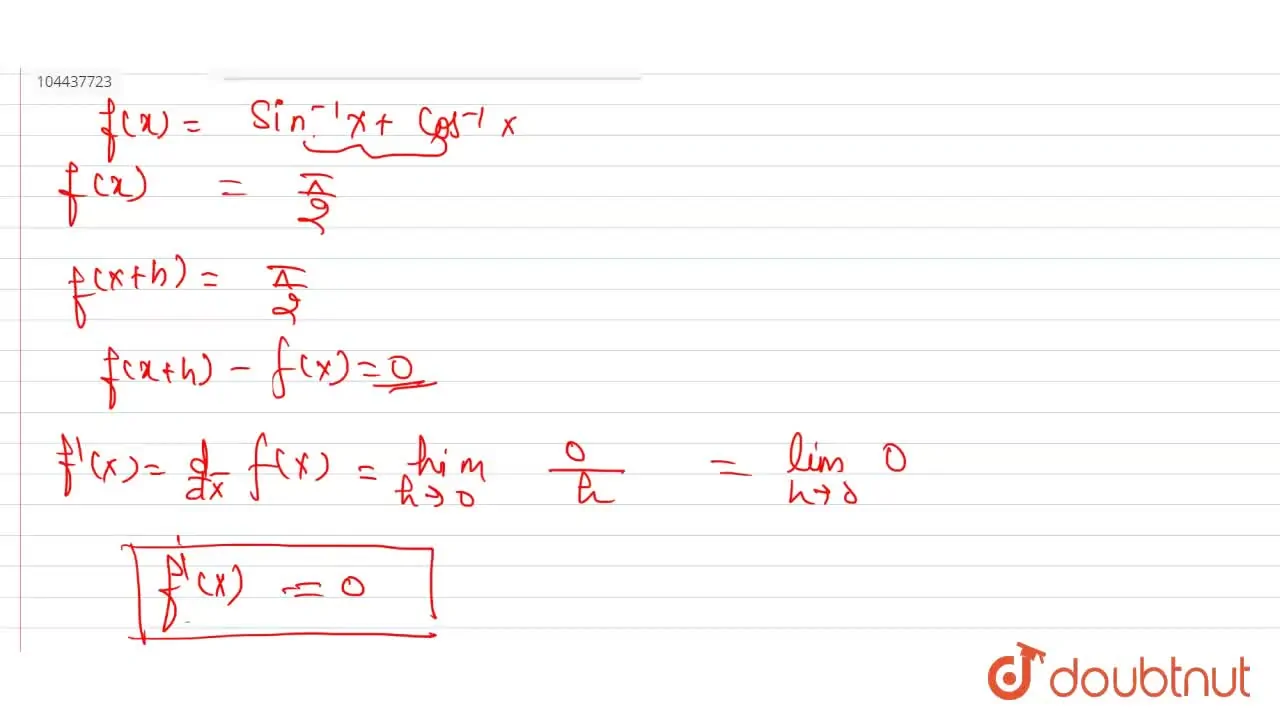 104437723
f(x) = Sin⁻¹ x + Cos⁻¹ x
f(x) = π/2
f(x+h) = π/2
f(x+h) - f(x) = 0
f'(x) = d/dx f(x) = lim h→0 0/h = lim h→0 0
f'(x) = 0
doubtnut